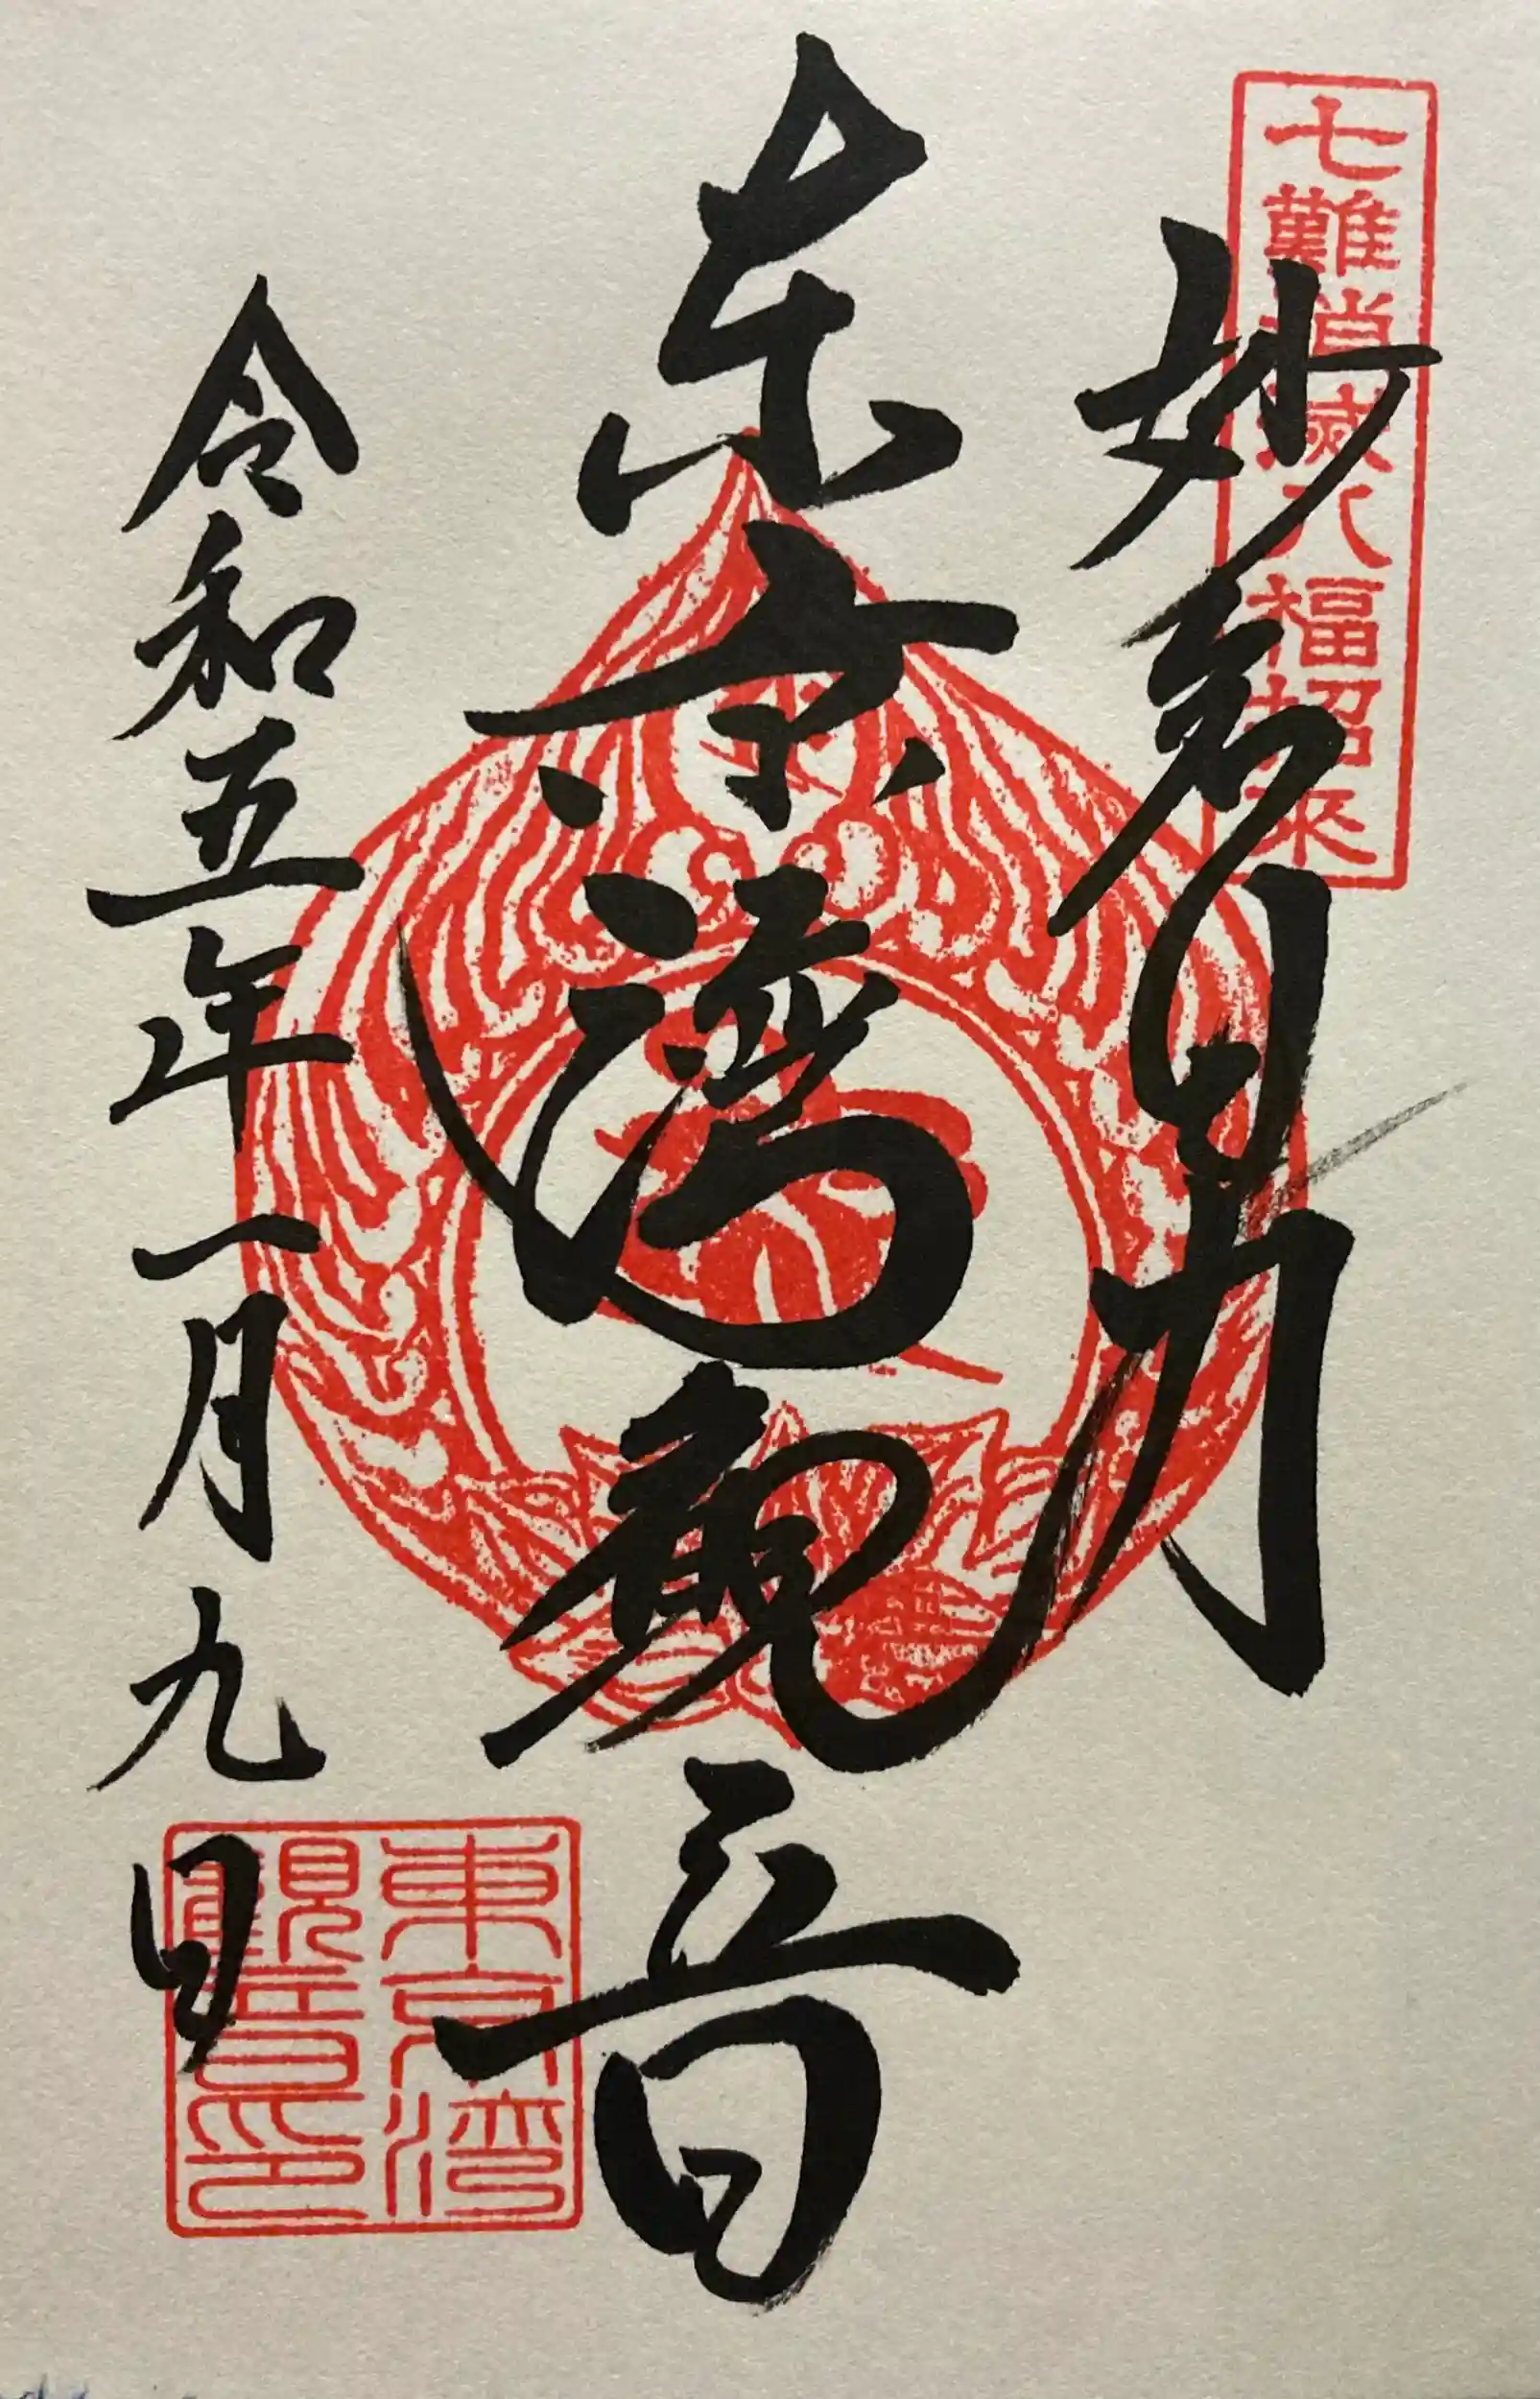 七難消滅八福招来
妙智力
東京湾観音
令和五年一月九日
東京湾
觀音印